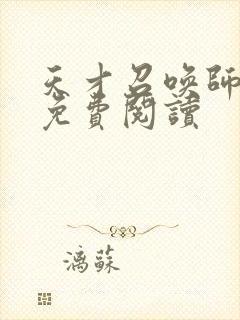 天才召喚師
免費閱讀
漓蘇